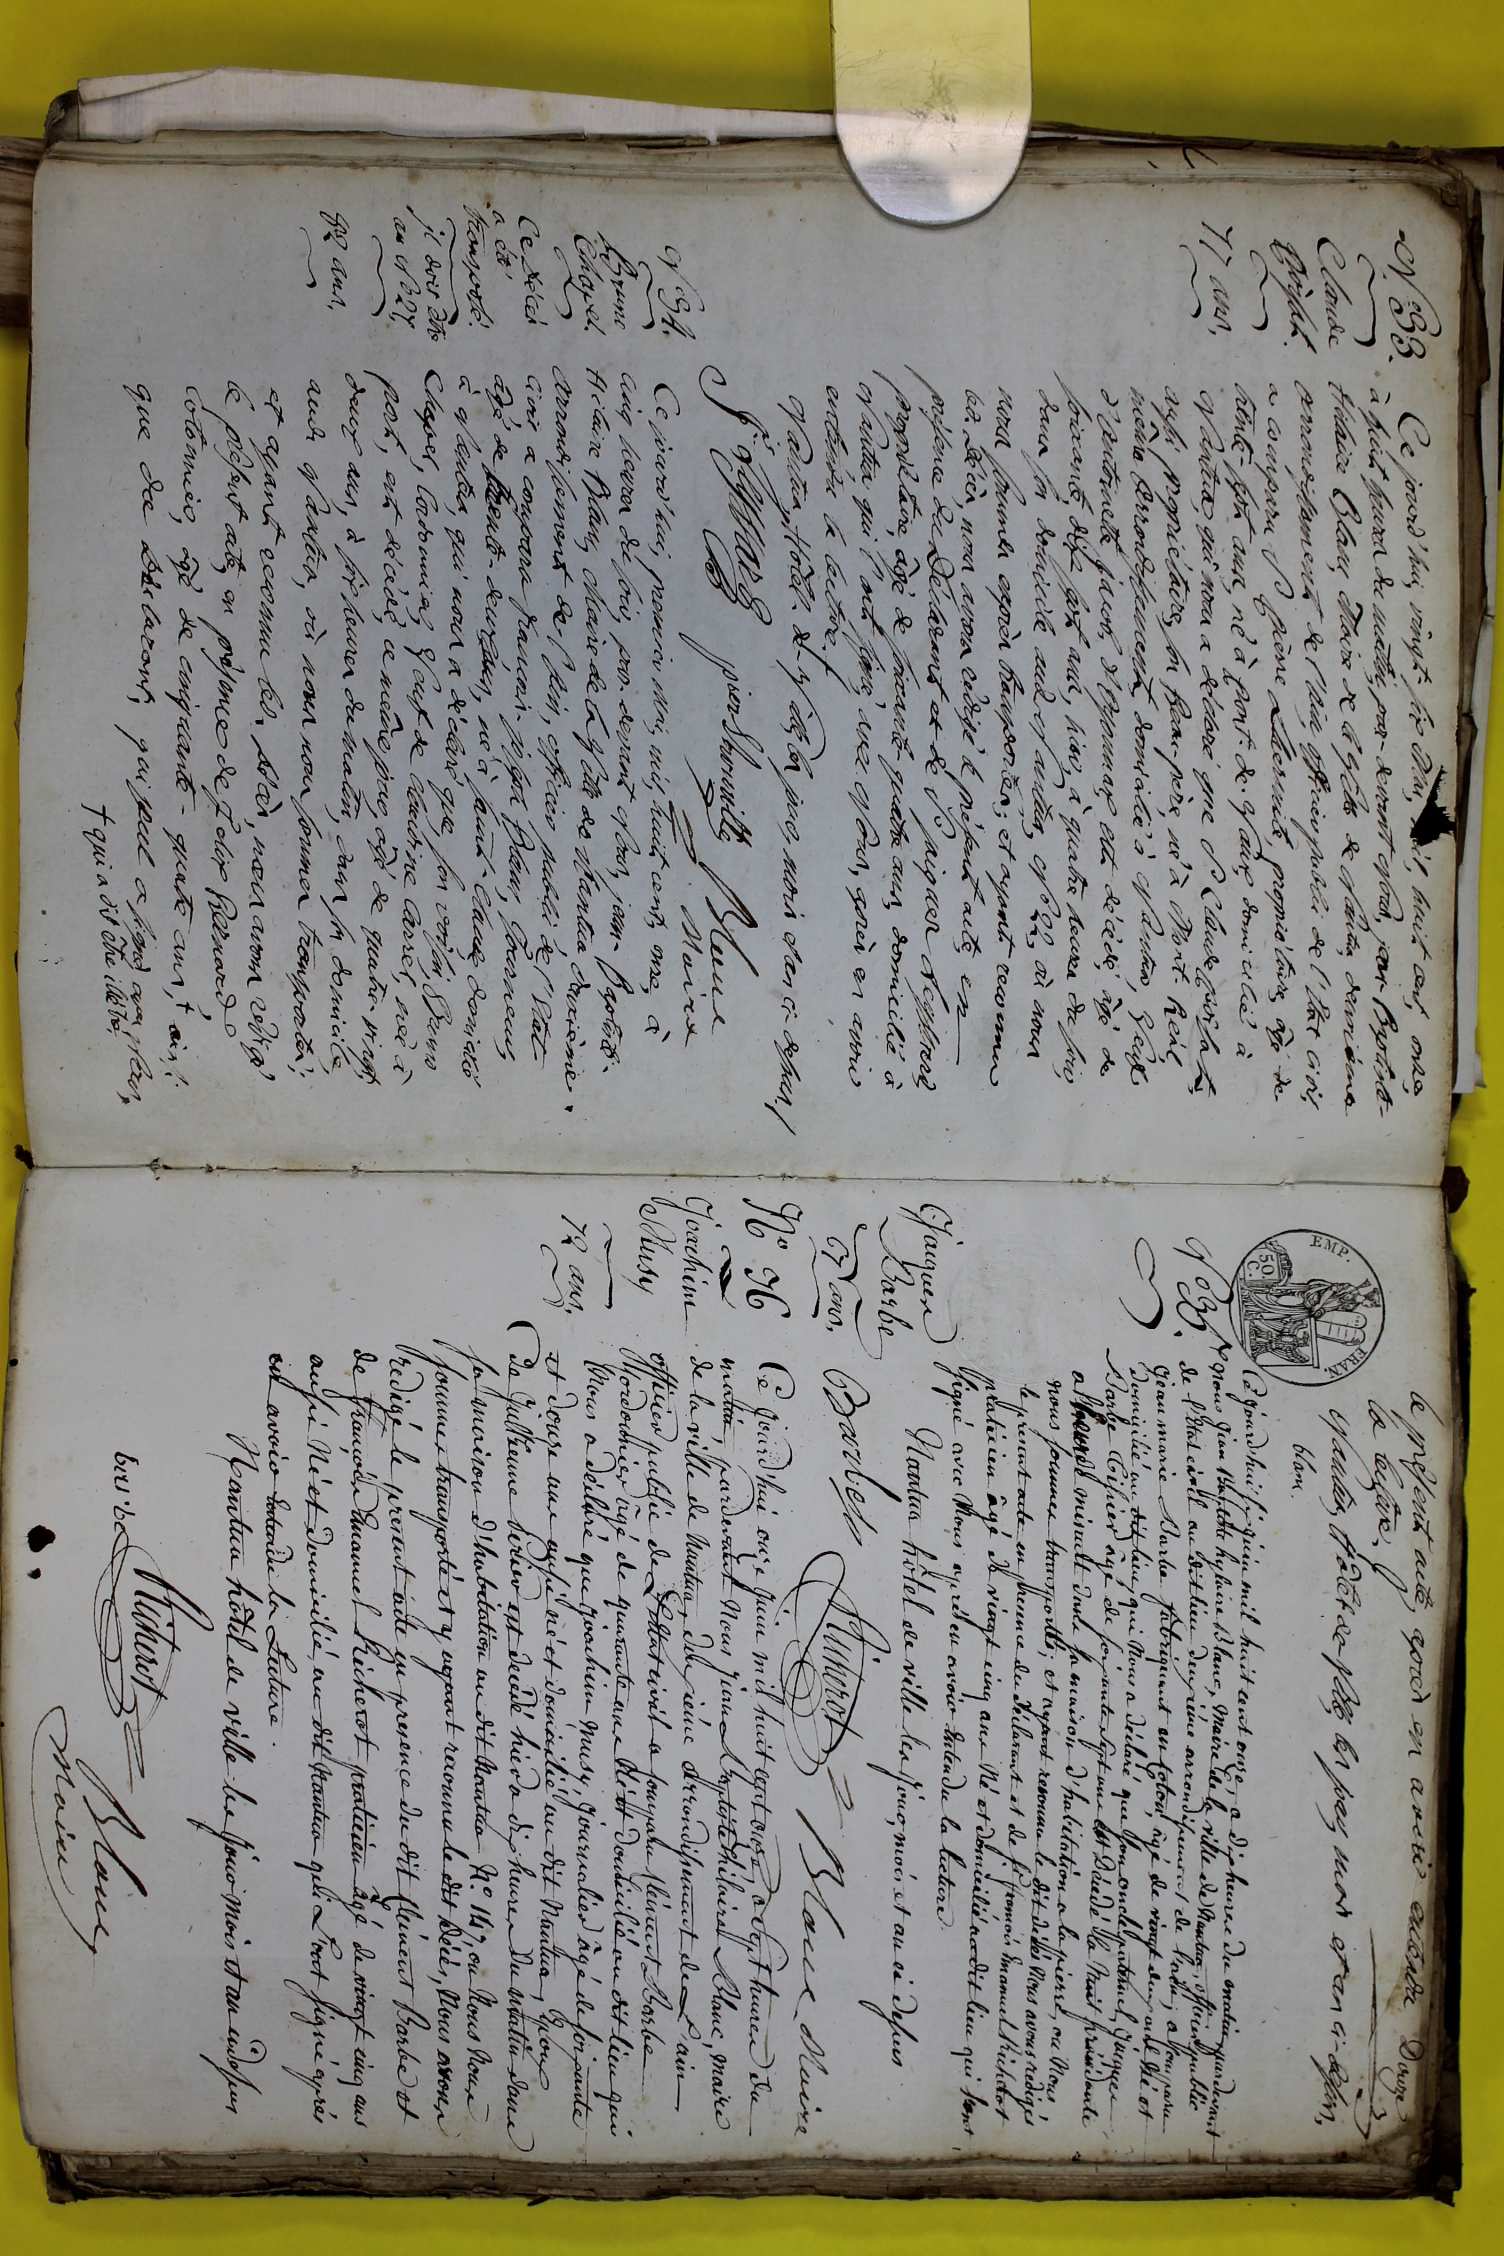 N.° 33.
Claude
77 ans.
Ce jourd'hui, vingt six Mai, mil, huit cent, onze,
à huit heures du matin, par-devant Nous, jean-Baptiste-
Hilaire Blanc, Maire de la Ville de Nantua, deuxième
arrondissement de l'Ain, officier public de l'Etat civil,
a comparu S. Pierre propriétaire, âgé de
trente-sept ans, né à Pont-de-Vaux, domicilié à
Nantua, qui nous a déclaré que S. Claude
aussi propriétaire, son Beau-père, né à Mont-Réal,
même Arrondissement, domicilié à Nantua, Veuf
d'antoinette est décédé, âgé de
soixante, dix sept ans, hier, à quatre heures du soir,
dans son domicile audit Nantua, N.° où nous
nous sommes exprès transportés; et ayant reconnu
led. décès, nous avons rédigé le présent acte, en
présence du Déclarant et de S.
propriétaire, âgé de soixante quatre ans, domicilié à
Nantua qui l'ont signé, avec Nous, après en avoir
entendu la lecture./.
Nantua, Hôtel-de-Ville, les jour, mois et an ci-dessus./
Blanc
Maire
N.° 34.
Bruno
Chapel.
Ce décès
a été
transposé.
il doit être
au N.° 27.
82 ans.
Ce jourd'hui, premier Mai, mil, huit cent, onze, à
cinq heures du soir, par-devant Nous, jean-Baptiste-
Hilaire Blanc, Maire de la Ville de Nantua, deuxième
arrondissement de l'Ain, officier public de l'Etat
civil a comparu françois joseph Blanc, Tourneur,
âgé de trente-deux ans, né à saint-Claude domicilié
à Nantua, qui nous a déclaré que, son voisin, Bruno
Chapel, Cordonnier, Veuf de Claudine né à
Pont, est décédé, ce même jour, âgé de quatre-vingt,
deux ans, à six heures du matin, dans son domicile,
audit Nantua, où nous nous sommes transportés;
et ayant reconnu led. décès, nous avons rédigé
le présent acte, en présence de felix Bernard,
Cotonnier, âgé de cinquante-quatre ans, † ainsi
que du Déclarant, qui seul a signé avec Nous,
† qui a dit être illitéré,
le présent acte, après en avoir entendu
la lecture./.
Nantua, hôtel de Ville, les jour, mois et an ci-dessus.
Blanc.
Douze
EMP. FRAN.
50 C.
N.° 35.
Jacques
Barbe
67 ans.
Ce jourd'hui six juin mil huit cent onze, à dix heures du matin, pardevant
Nous Jean Baptiste hylaire Blanc, Maire de la ville de Nantua, officier public
de l'Etat civil au dit lieu deuxième arrondissement de l'ain, a comparu
Jean marie Barbe fabriquant en coton, âgé de vingt deux ans Né et
domicilié au dit lieu, qui Nous a déclaré que son oncle paternel, Jacques
Barbe Coiffier âgé de soixante sept ans est Décédé la Nuit précédente
à minuit dans sa maison d'habitation à la pierre, où Nous
nous sommes transportés; et ayant reconnu le dit décès Nous avons rédigés
le présent acte en présence du déclarant et de françois Emanuel Richerot
praticien âgé de vingt cinq ans Né et domicilié au dit lieu qui l'ont
signé avec Nous après en avoir entendu la lecture.
Nantua hôtel de ville les jour, mois et an ci dessus
Barbe Richerot Blanc Maire
N.° 36
Joachim
Musy
72 ans.
Ce jourd'hui onze juin mil huit cent onze, à sept heures du
matin, pardevant Nous jean Baptiste hilaire Blanc, Maire
de la ville de Nantua, deuxième Arrondissement de L'ain
officier public de L'Etat civil a comparu Clément Barbe
Cordonnier âgé de quarante ans Né et domicilié au dit lieu qui
Nous a déclaré que Joachim Musy, Journalier âgé de soixante
et douze ans aussi né et domicilié au dit Nantua, Epoux
de Justienne est décédé hier à dix heures du matin dans
sa maison d'habitation au dit Nantua N.° 114, où Nous Nous
sommes transportés et y ayant reconnu le dit décès, Nous avons
rédigé le présent acte en présence du dit Clément Barbe et
de françois Emanuel Richerot praticien âgé de vingt cinq ans
aussi Né et domicilié au dit Nantua qui L'ont signé après
en avoir entendu la Lecture.
Nantua hôtel de ville les jour mois et an ci dessus
Richerot Blanc
Maire